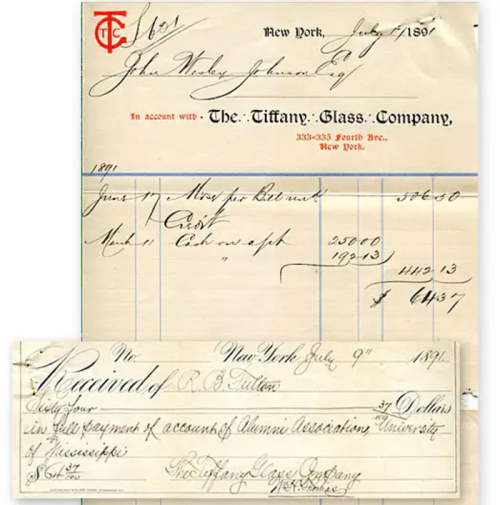 TCC
New York, July 1891
John Wesley Johnson Esq
In account with The Tiffany Glass Company,
333-335 Fourth Ave.,
New York.
1891
June 17 Mdse per Bill 506 50
Credit
March 11 Cash on a/c 250 00
" 192 13
442 13
$ 64 37
No. New York July 9" 1891
Received of R. B. Fulton
Sixty four 37 Dollars
in full payment of account of Alumni Association, University
of Mississippi
$64 37/100 The Tiffany Glass Company